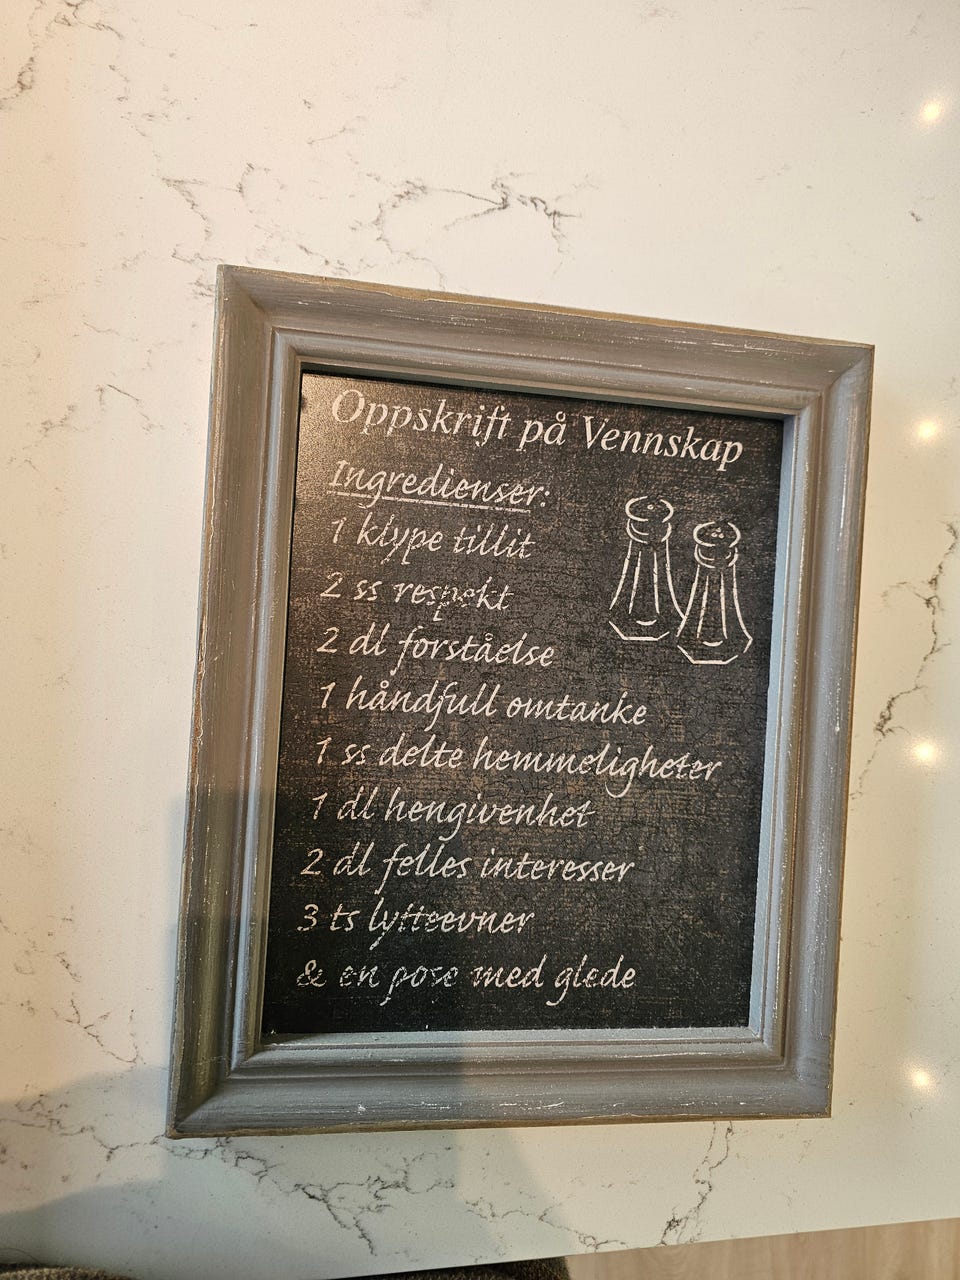 Oppskrift på Vennskap
Ingredienser:
1 klype tillit
2 ss respekt
2 dl forståelse
1 håndfull omtanke
1 ss delte hemmeligheter
1 dl hengivenhet
2 dl felles interesser
3 ts lytteevner
& en pose med glede